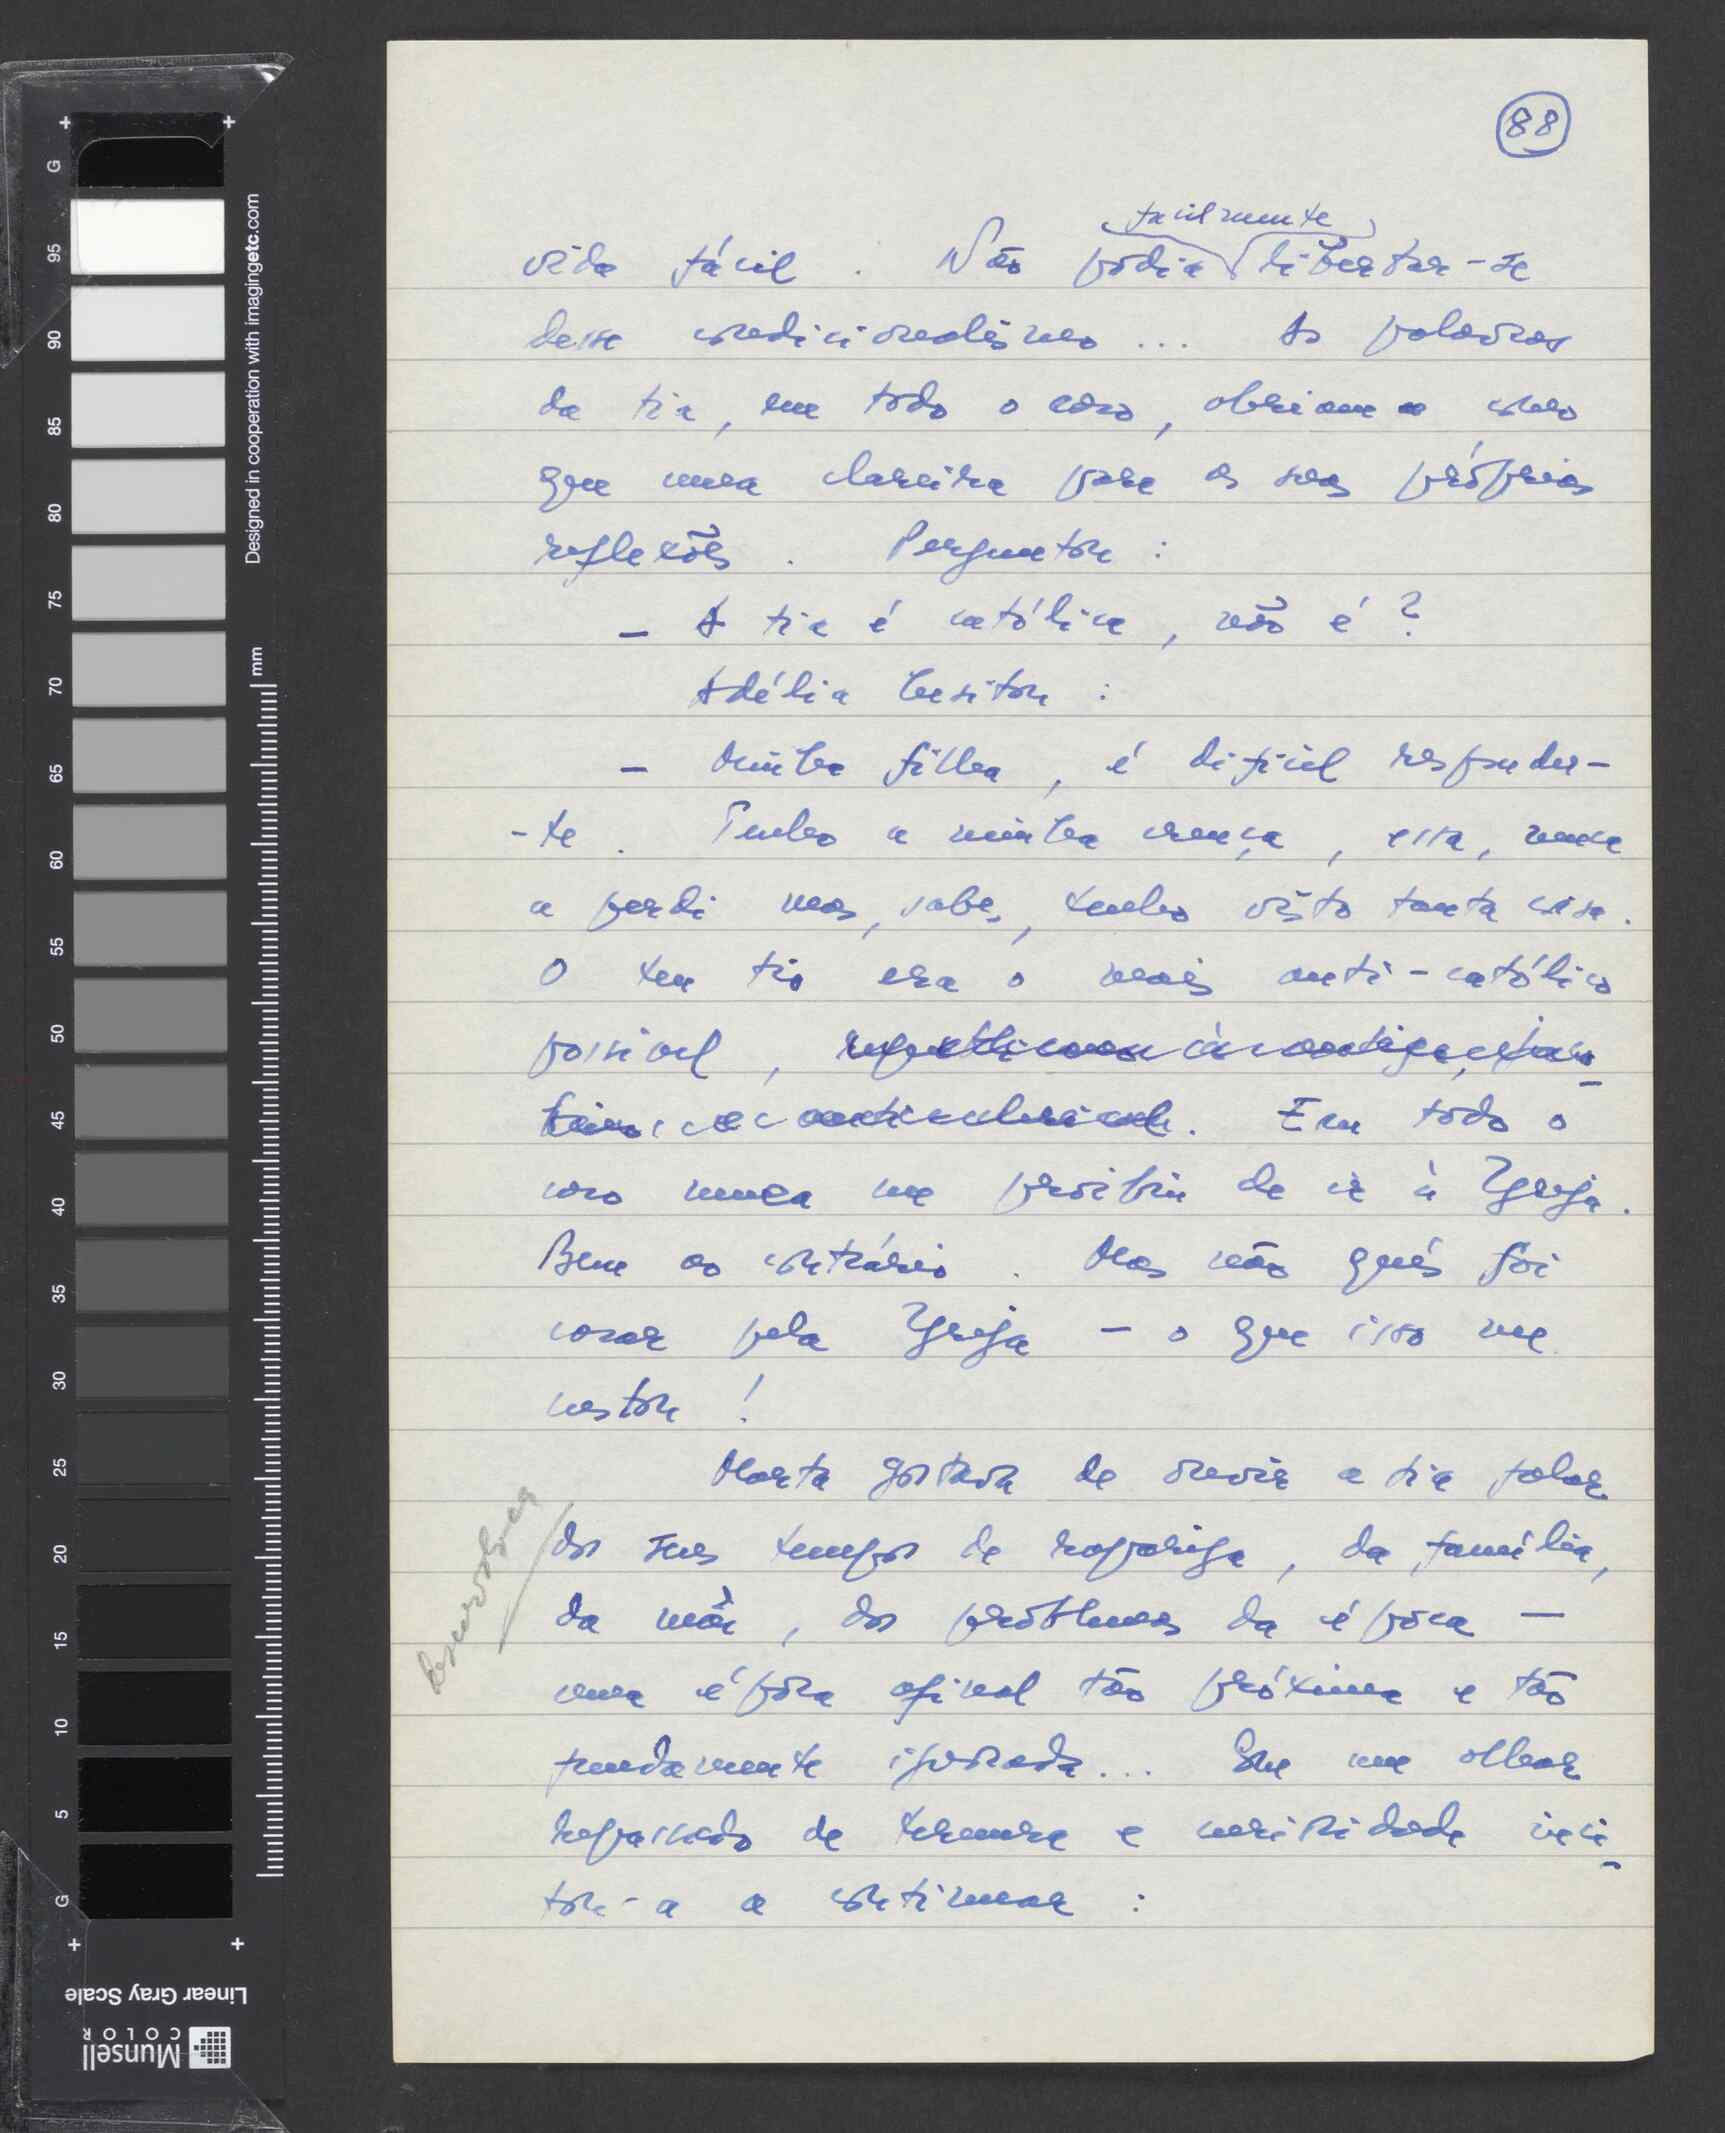 88
facilmente
vida fácil. Não podia libertar-se
desse condicionalismo... As palavras
da tia, em todo o caso, abriam como
que uma clareira para as suas próprias
reflexões. Perguntou:
- A tia é católica, não é?
Adélia hesitou:
- Minha filha, é difícil responder-
-te. Tenho a minha crença, essa, nunca
a perdi mas, sabes, tenho visto tanta coisa.
O teu tio era o mais anti-católico
possível, republicano à antiga,
anticlerical. Em todo o
caso nunca me proibiu de ir à Igreja.
Bem ao contrário. Mas não quis foi
casar pela Igreja - o que isso me
custou!
Marta gostava de ouvir a tia falar
dos seus tempos de rapariga, da família,
da mãe, dos problemas da época —
uma época afinal tão próxima e tão
fundamente ignorada... Com um olhar
repassado de ternura e curiosidade inci-
tou-a a continuar:
Designed in cooperation with imagingetc.com
mm
G 95 90 85 80 75 70 65 60 55 50 45 40 35 30 25 20 15 10 5 G
Linear Gray Scale
Munsell
COLOR